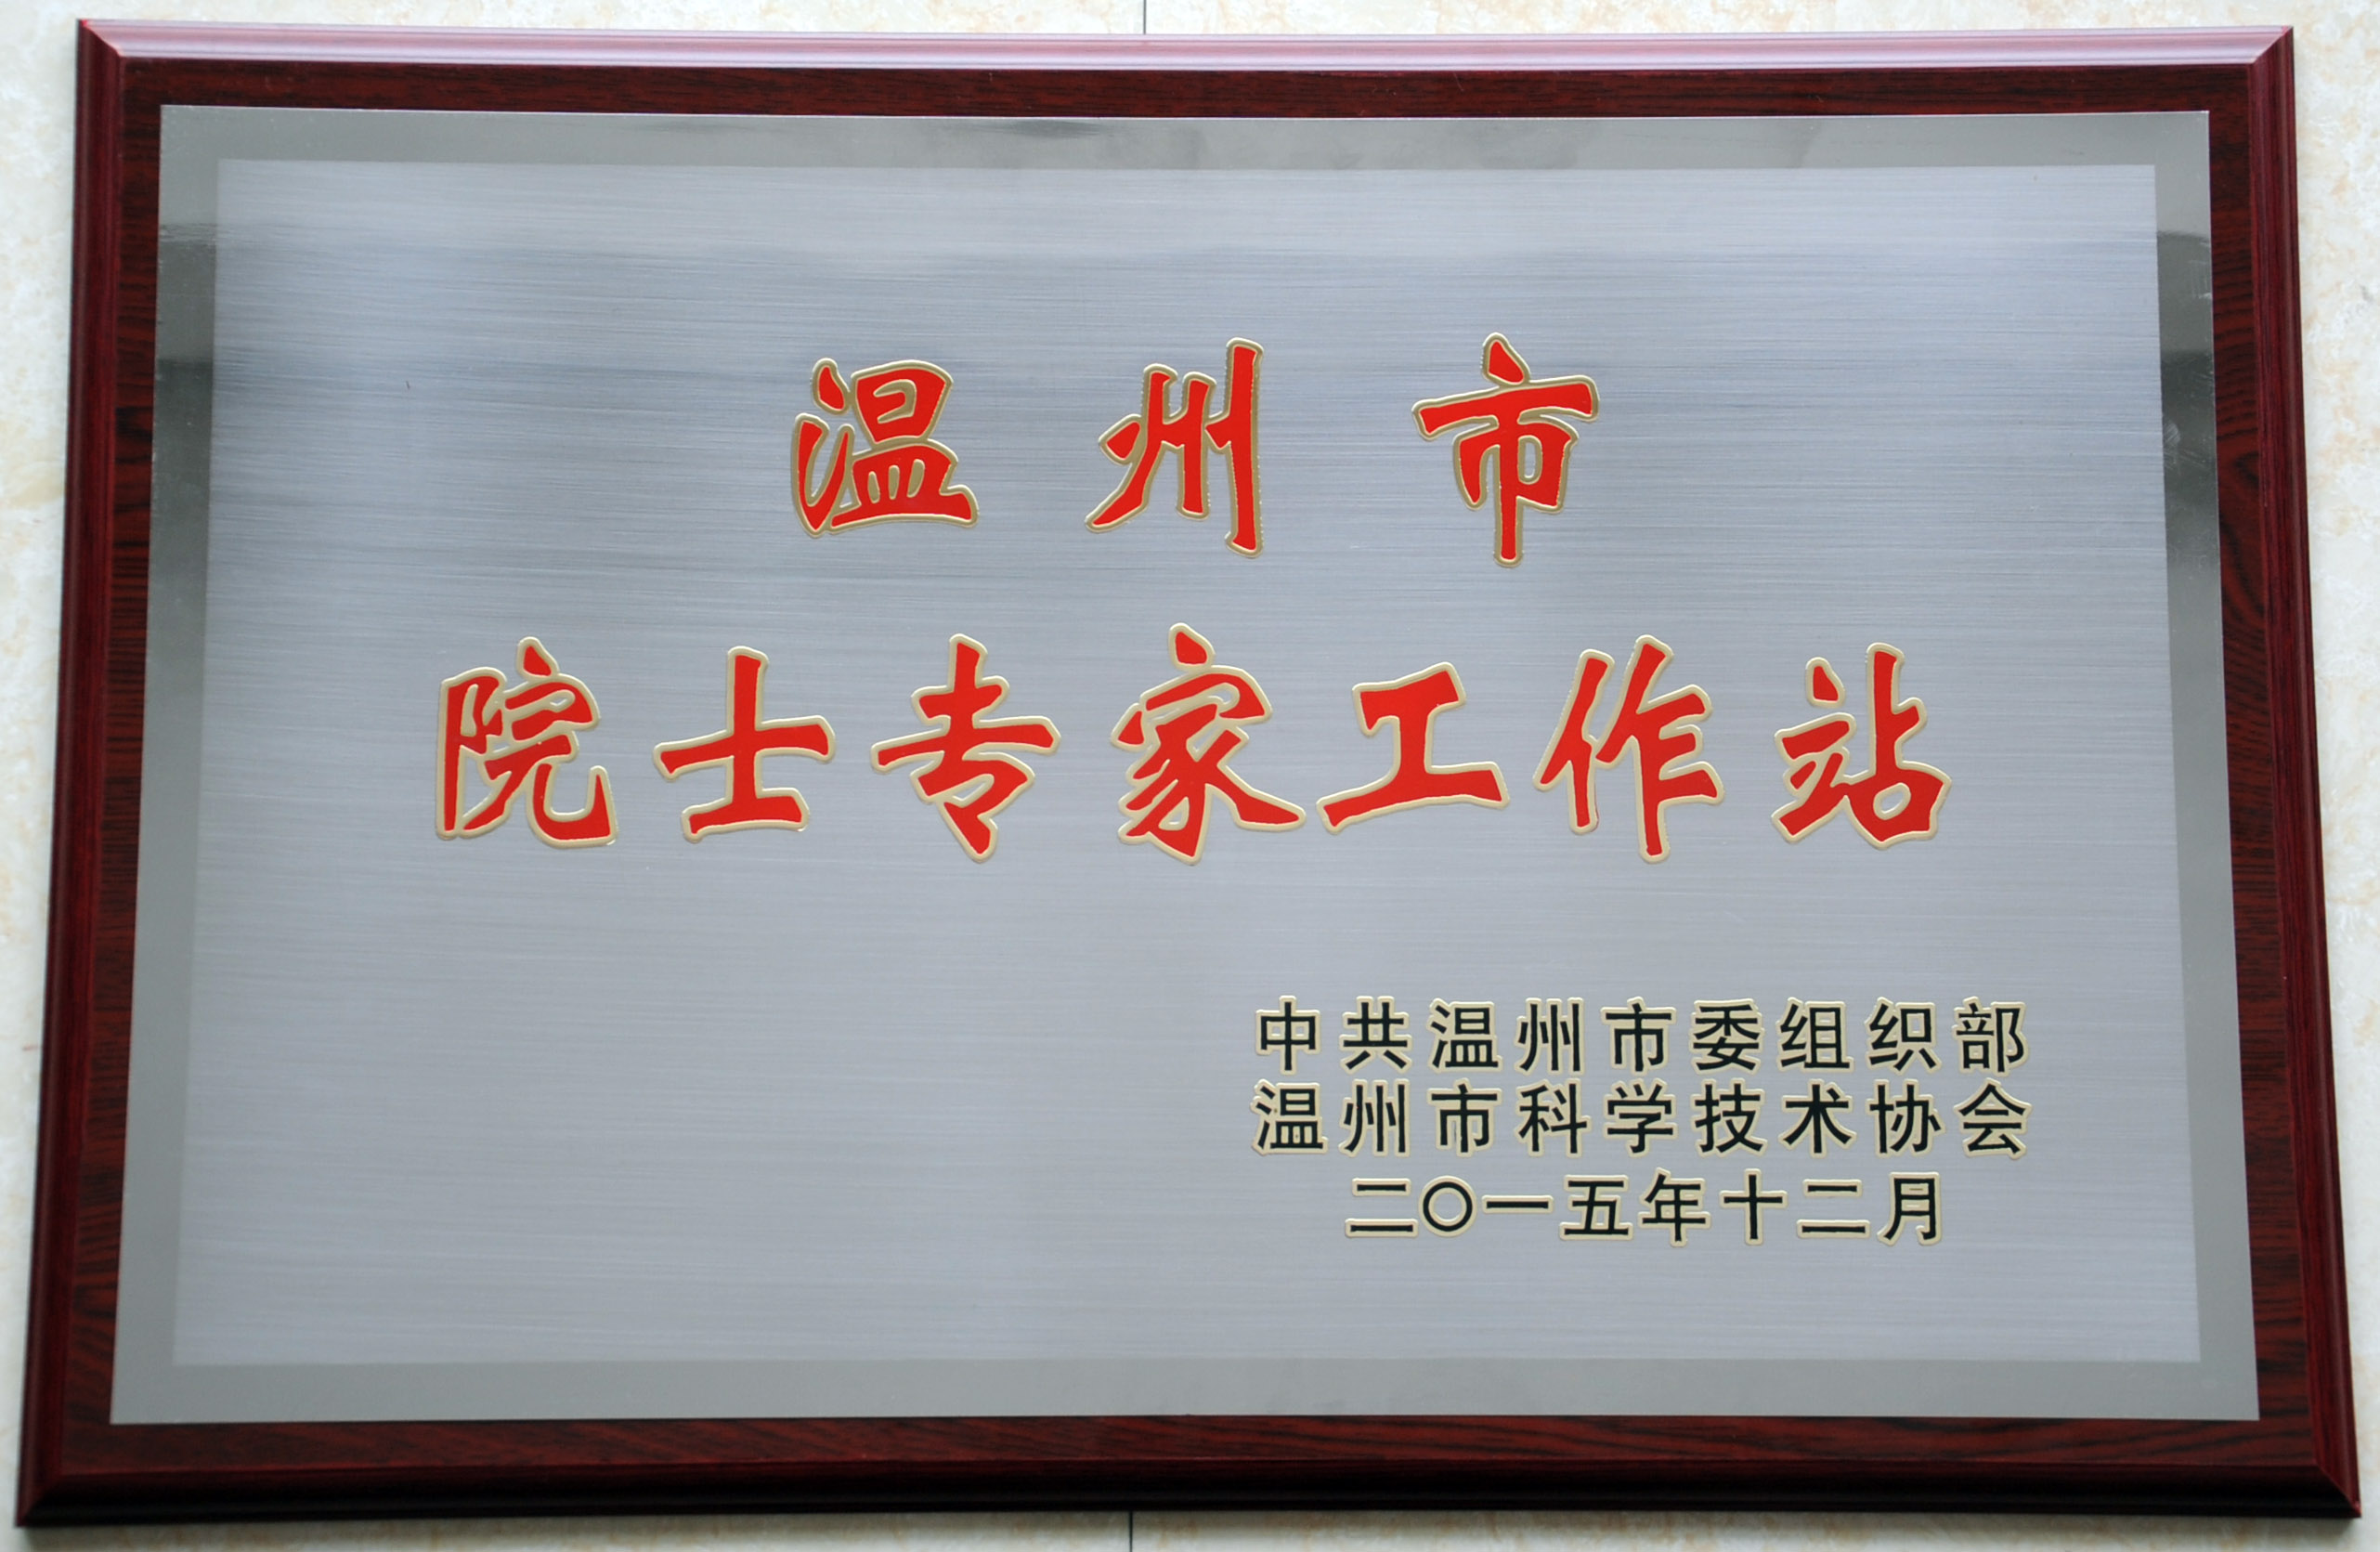 温州市
院士专家工作站
中共温州市委组织部
温州市科学技术协会
二〇一五年十二月